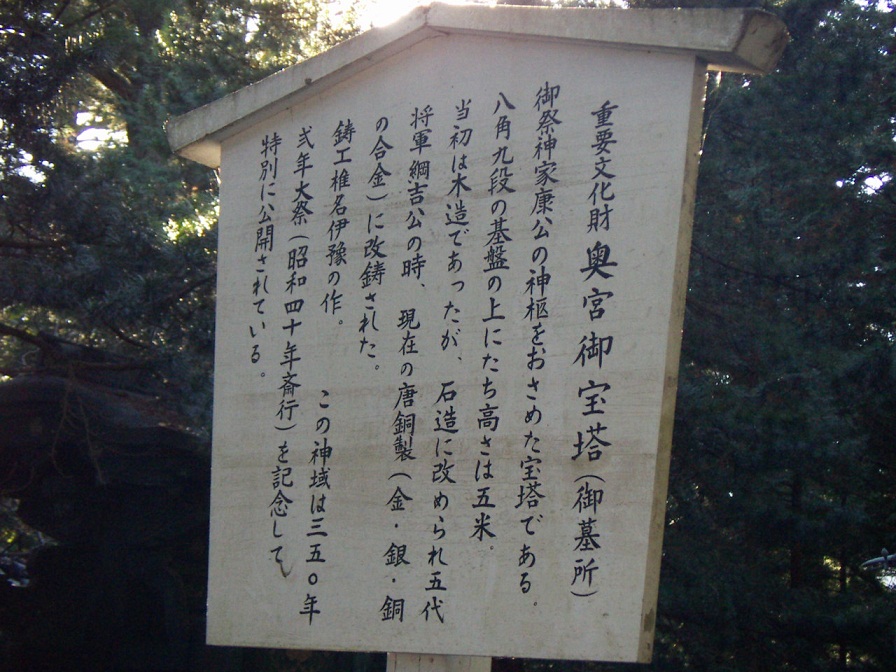 重要文化財 奥宮御宝塔（御墓所）
御祭神家康公の神柩をおさめた宝塔である。
八角九段の基盤の上にたち高さは五米。
当初は木造であったが、石造に改められ五代
将軍綱吉公の時、現在の唐銅製（金・銀・銅
の合金）に改鋳された。
鋳工椎名伊豫の作。 この神域は三五〇年
弐年大祭（昭和四十年斎行）を記念して
特別に公開されている。